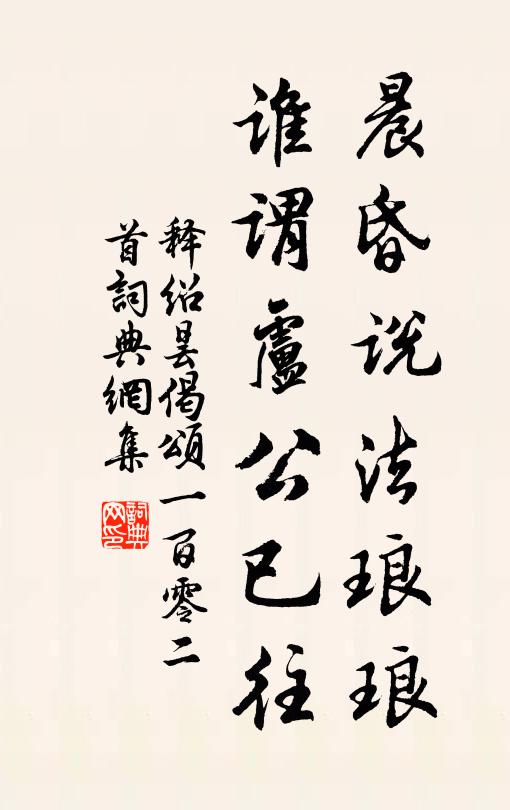 晨昏说法琅琅
谁谓廬公已往
释绍昙偈颂一百零二
首詞典網集
詞典网印